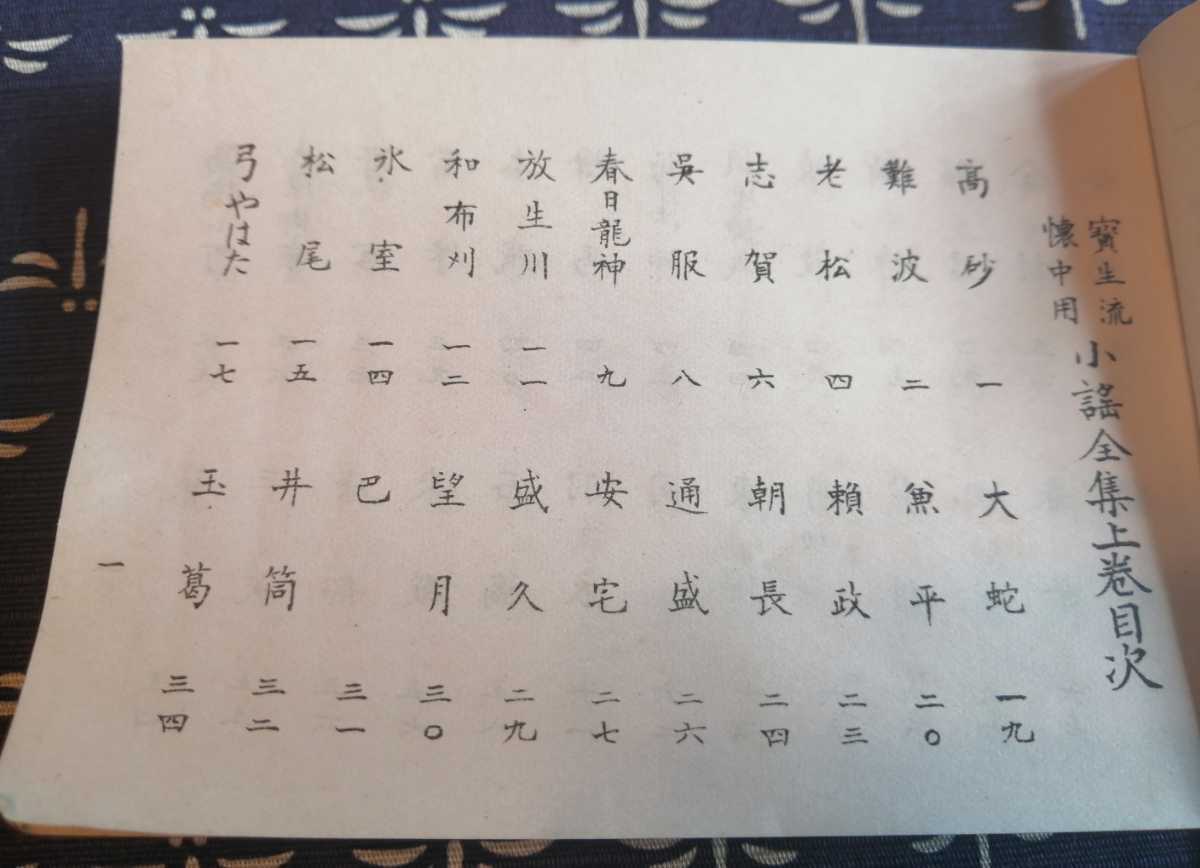 寳生流
懐中用
小謡全集上巻目次
高砂 一
難波 二
老松 四
志賀 六
呉服 八
春日龍神 九
放生川 一一
和布刈 一二
氷室 一四
松尾 一五
弓やはた 一七
大蛇 一九
兼平 二〇
頼政 二三
朝長 二四
通盛 二六
安宅 二七
盛久 二九
望月 三〇
巴 三一
井筒 三二
玉葛 三四
一